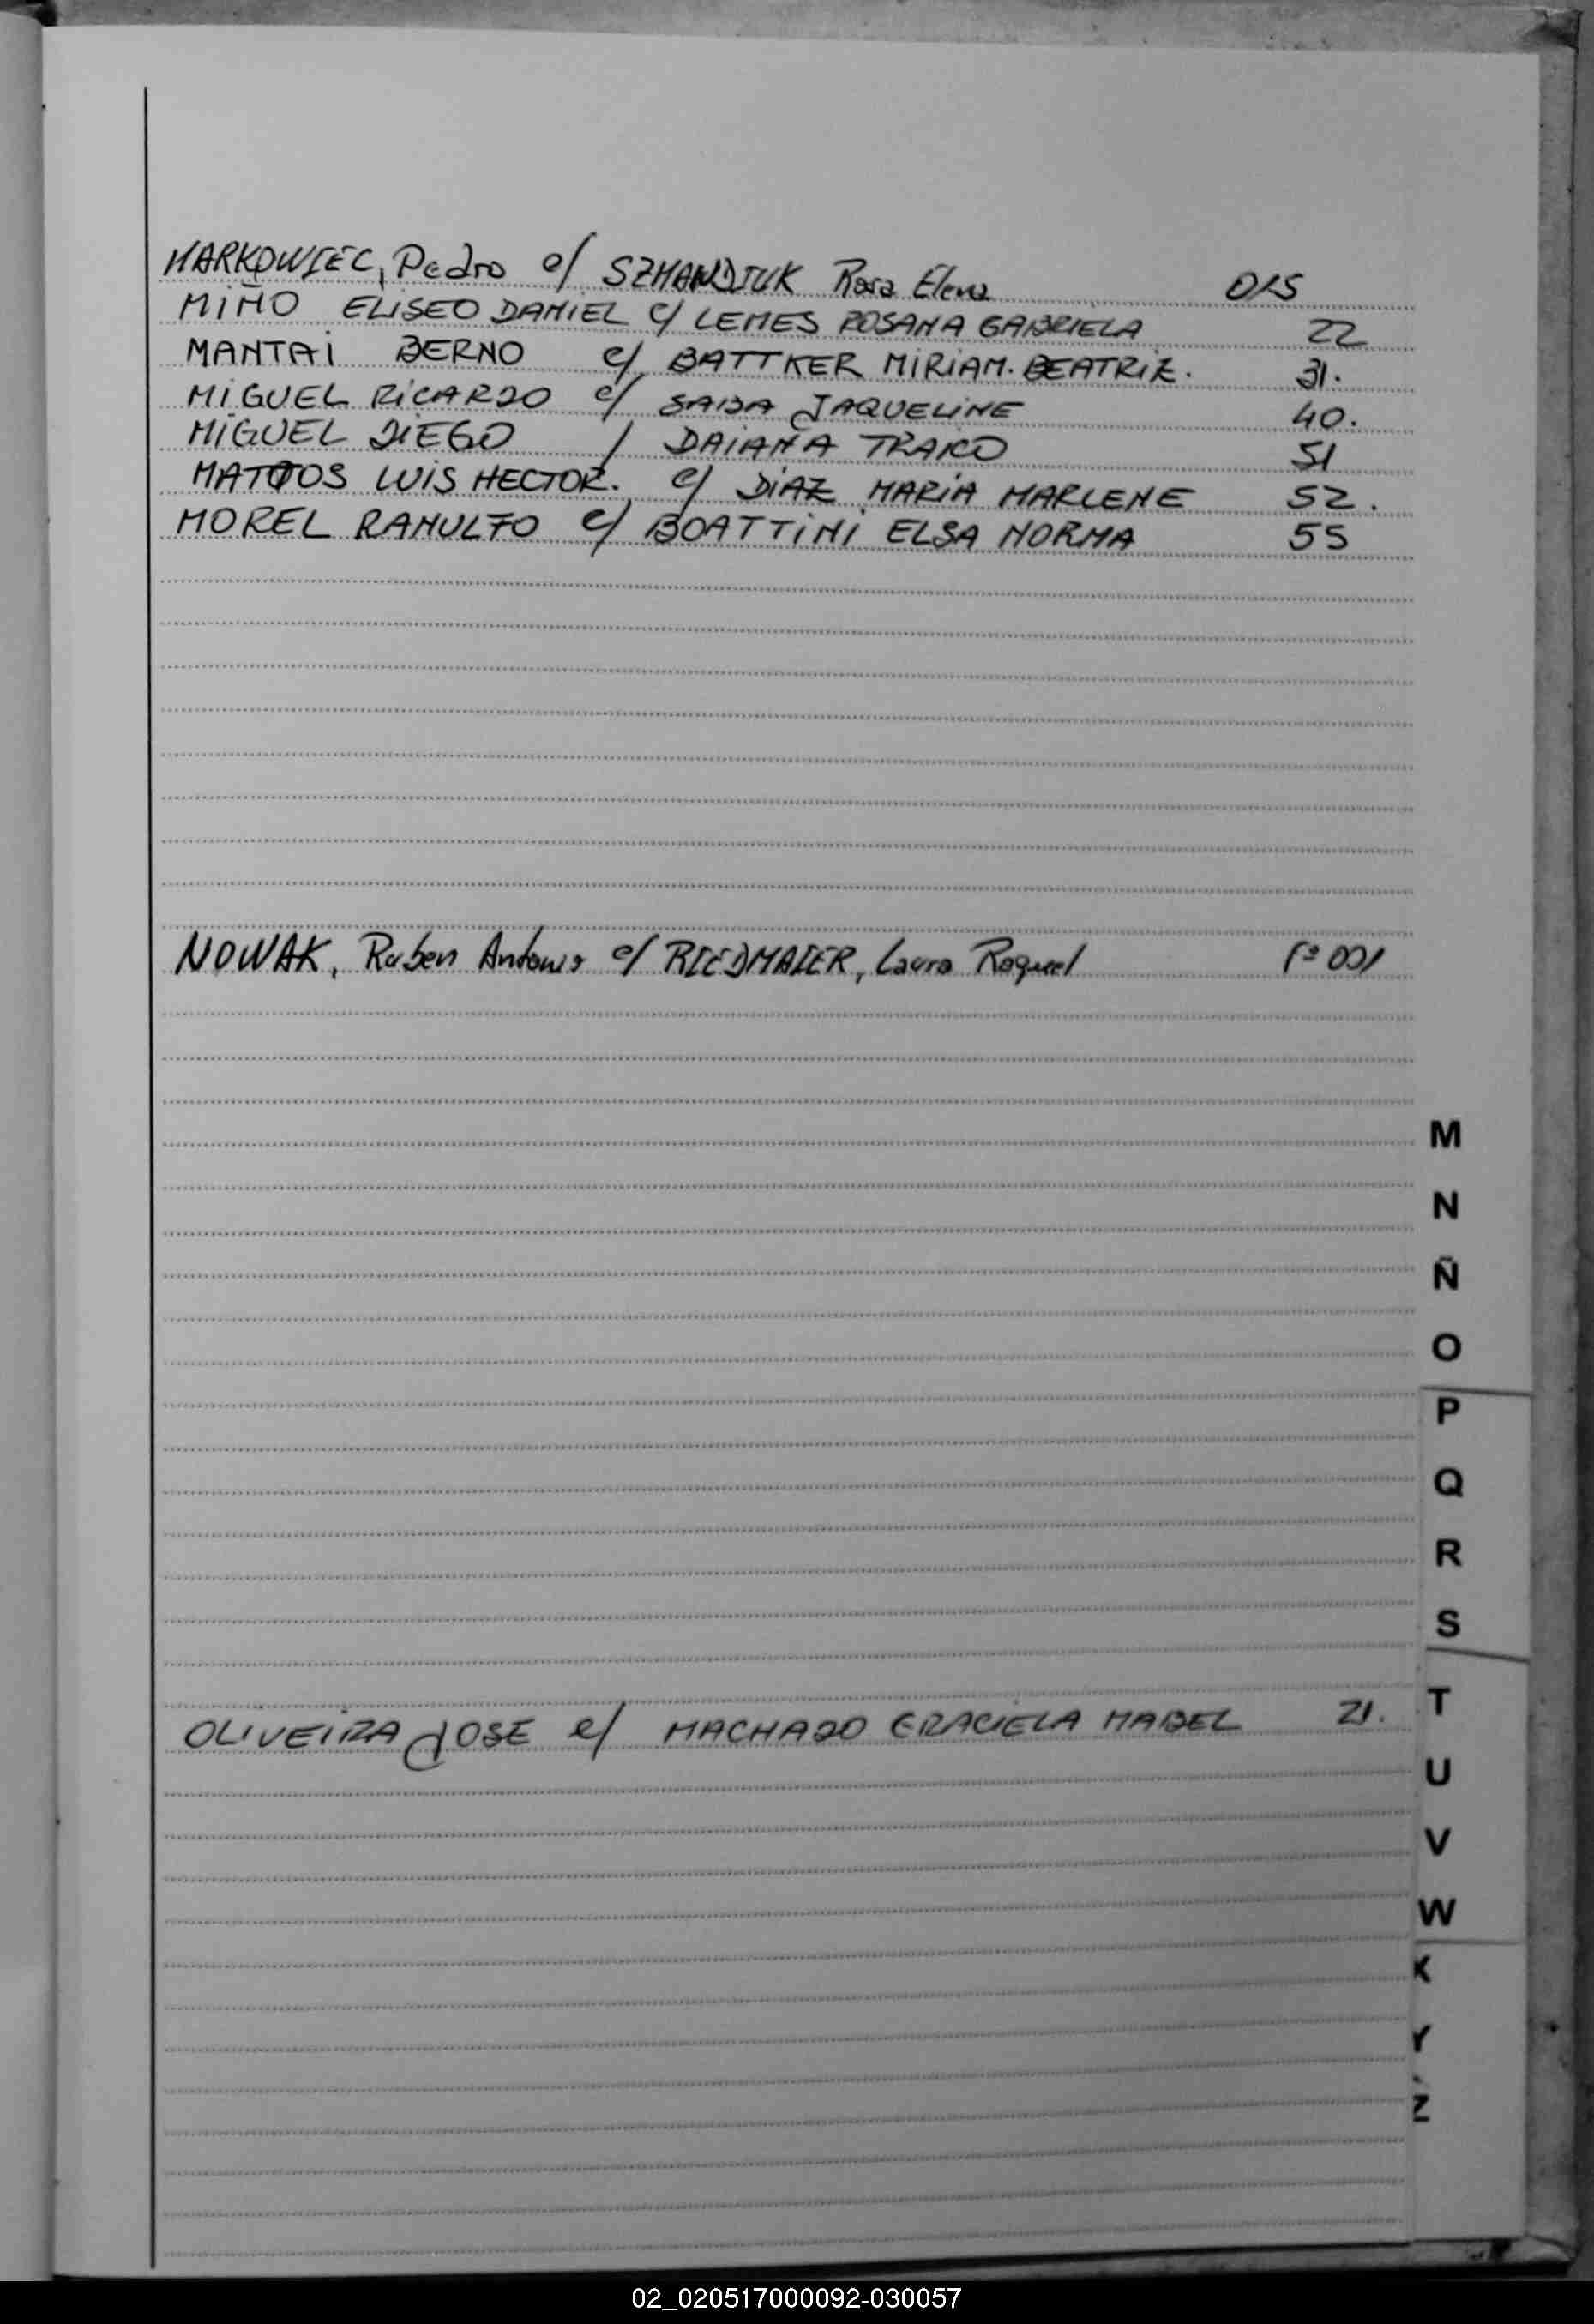 MARKOWIEC, Pedro c/ SZMANDIUK Rosa Elena 015
MIÑO ELISEO DANIEL c/ LEMES ROSANA GABRIELA 22
MANTAI BERNO c/ BATTKER MIRIAM. BEATRIZ. 31.
MIGUEL RICARDO c/ SAIDA JAQUELINE 40.
MIGUEL DIEGO / DAIANA TRAICO 51
MATTOS LUIS HECTOR. c/ DIAZ MARIA MARLENE 52.
MOREL RANULFO c/ BOATTINI ELSA NORMA 55
NOWAK, Ruben Antonio c/ RIEDMAIER, Laura Raquel fº 001
M
N
Ñ
O
P
Q
R
S
OLIVEIRA JOSE c/ MACHADO GRACIELA MABEL 21.
T
U
V
W
X
Y
Z
02_020517000092-030057